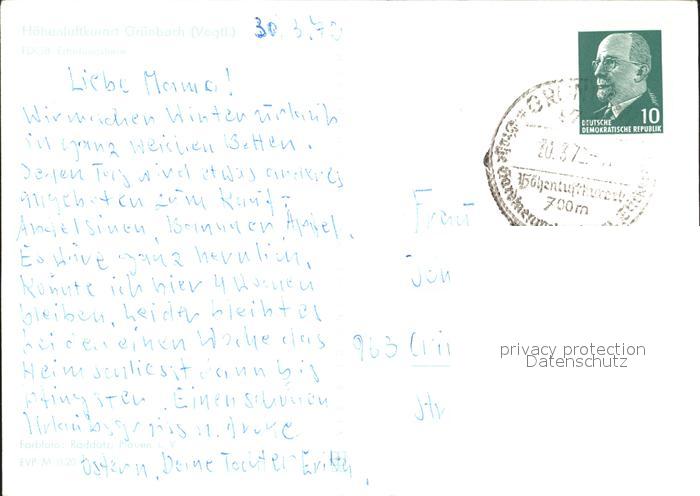 Höhenluftkurort Grünbach (Vogtl.)
FDGB-Erholungsheim
30.3.70
Liebe Mama!
Wir machen Winterurlaub
in ganz weichen Betten.
Jeden Tag wird etwas anderes
angeboten zum Kauf:
Apfelsinen, Bananen, Äpfel.
Es wäre ganz herrlich,
könnte ich hier 4 Wochen
bleiben. Leider bleibt es
bei der einen Woche das
Heim schliesst dann bis
Pfingsten. Einen schönen
Urlaubsgruss u. Frohe
Ostern. Deine Tochter
Farbfoto: Raddatz, Plauen i. V.
EVP-M 0.20
10
DEUTSCHE
DEMOKRATISCHE REPUBLIK
Höhenluftkurort
700 m
Frau
963
Str
privacy protection
Datenschutz